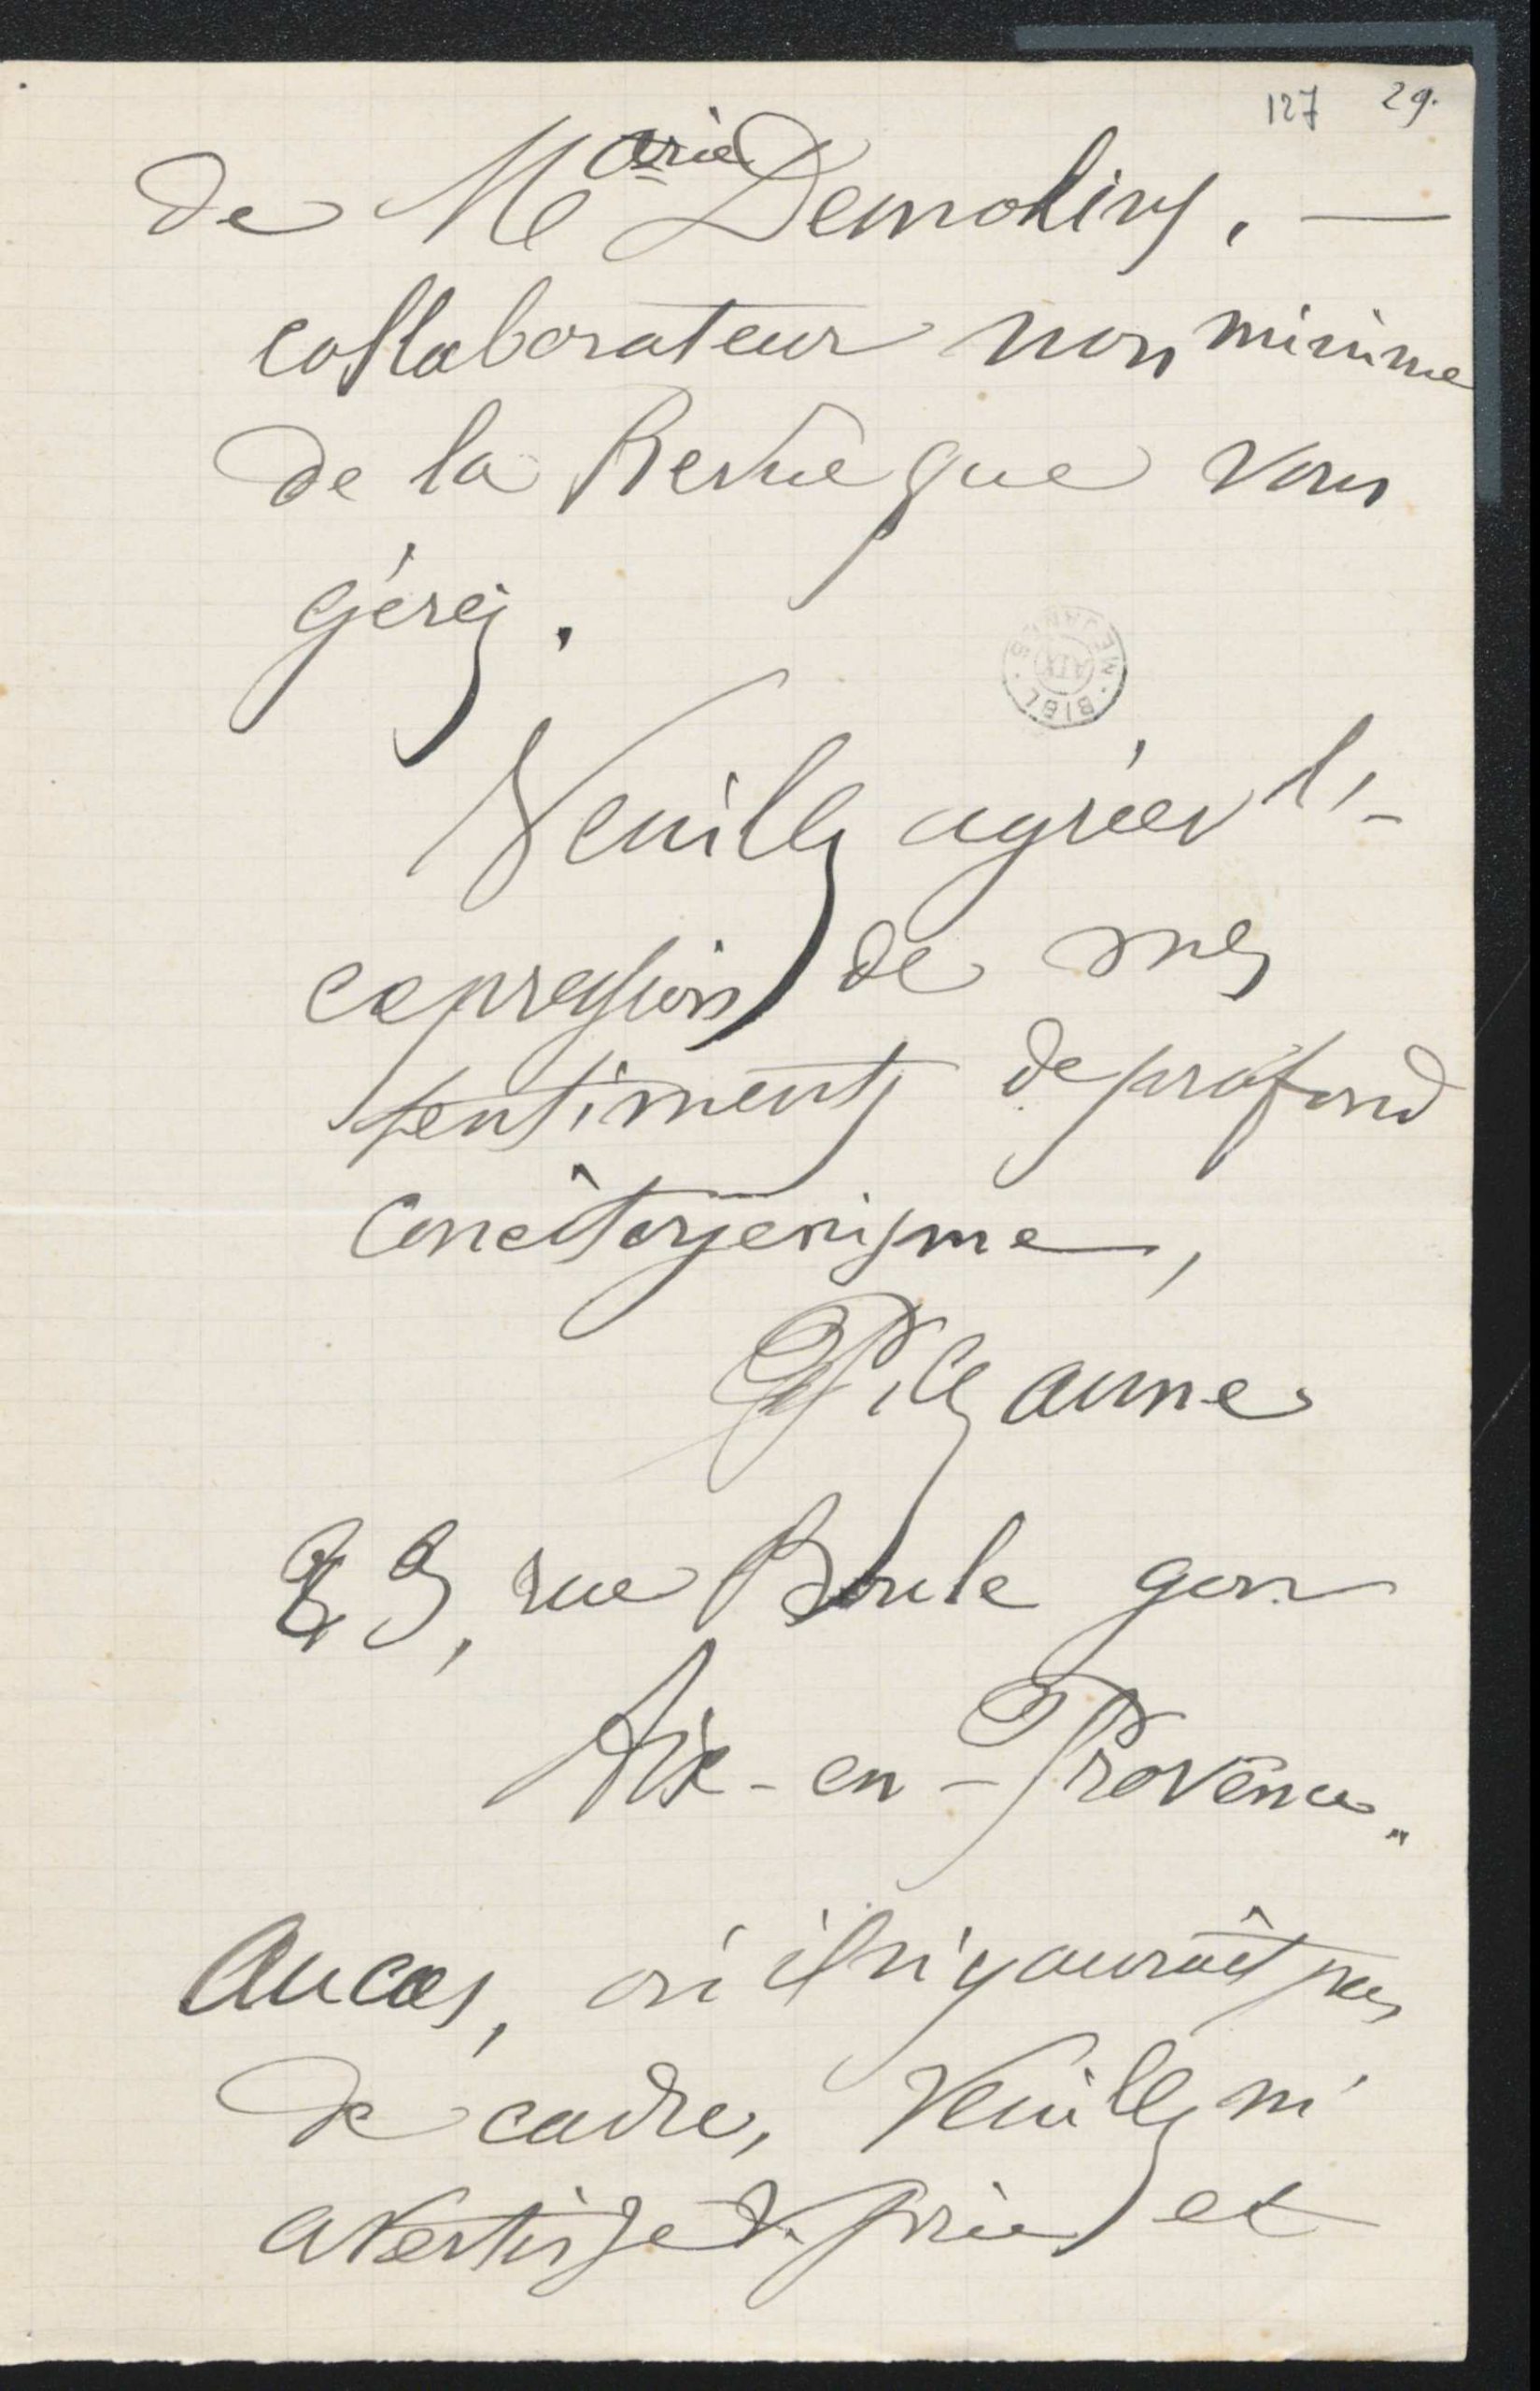 127 29.
de Marie Demolins, —
collaborateur non minime
de la Revue que vous
gérez.
Veuillez agréer l'-
expression de mes
sentiments de profond
concitoyenisme,
P. Cézanne
23, rue Boulegon
Aix-en-Provence.
Au cas, où il n'y aurait pas
de cadre, Veuillez m'
avertir je v. prie et
BIBL. MEJANES AIX